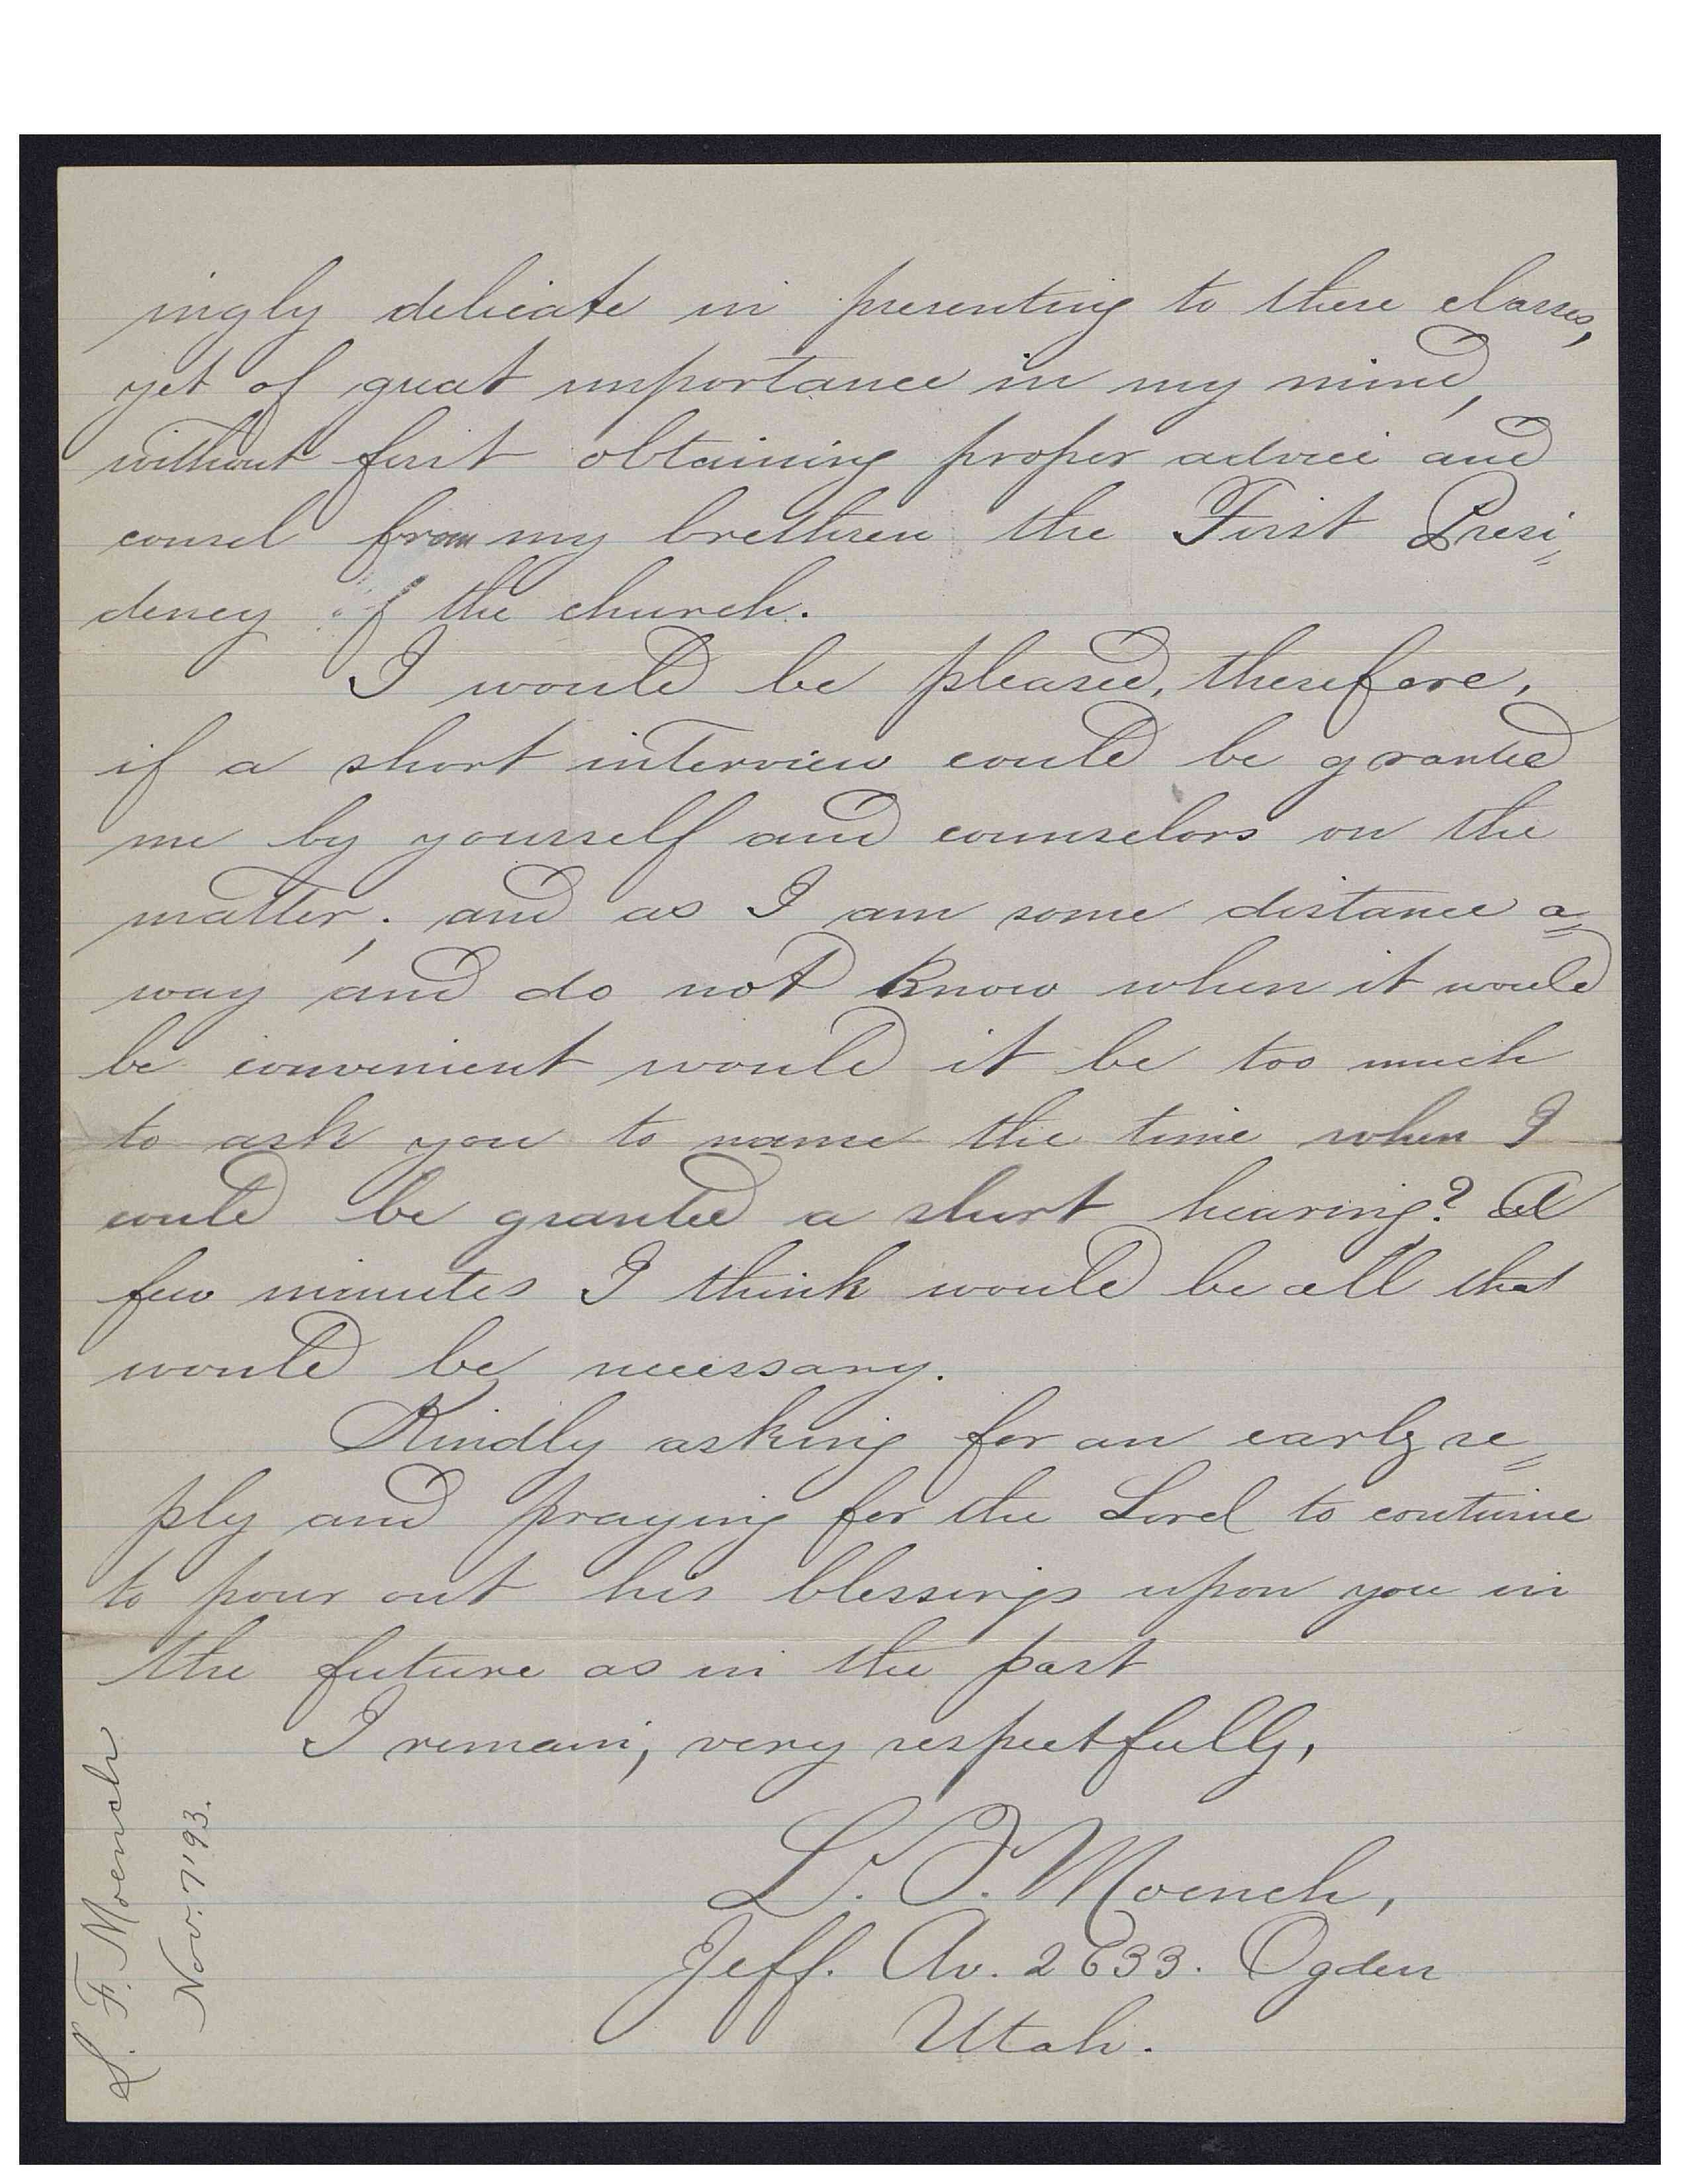 ingly delicate in presenting to these classes,
yet of great importance in my mind,
without first obtaining proper advice and
counsel from my brethren the First Presi=
dency of the church.
I would be pleased, therefore,
if a short interview could be granted
me by yourself and counselors on the
matter; and as I am some distance a=
way and do not know when it would
be convenient would it be too much
to ask you to name the time when I
could be granted a short hearing? A
few minutes I think would be all that
would be necessary.
Kindly asking for an early re=
ply and praying for the Lord to continue
to pour out his blessings upon you in
the future as in the past
I remain, very respectfully,
L. F. Moench,
Jeff. Av. 2633. Ogden
Utah.
L. F. Moench
Nov. 7 '93.